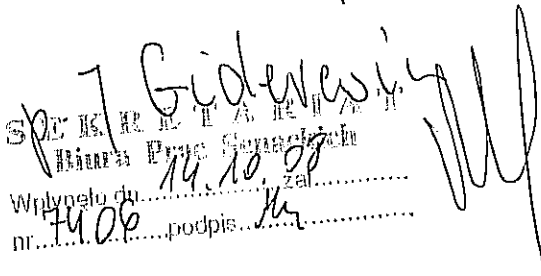 sp. J Giderewicz
SEKRETARIAT
Biura Prac Senackich
Wpłynęło dn. 14.10.08 zał.
nr. 7406 podpis